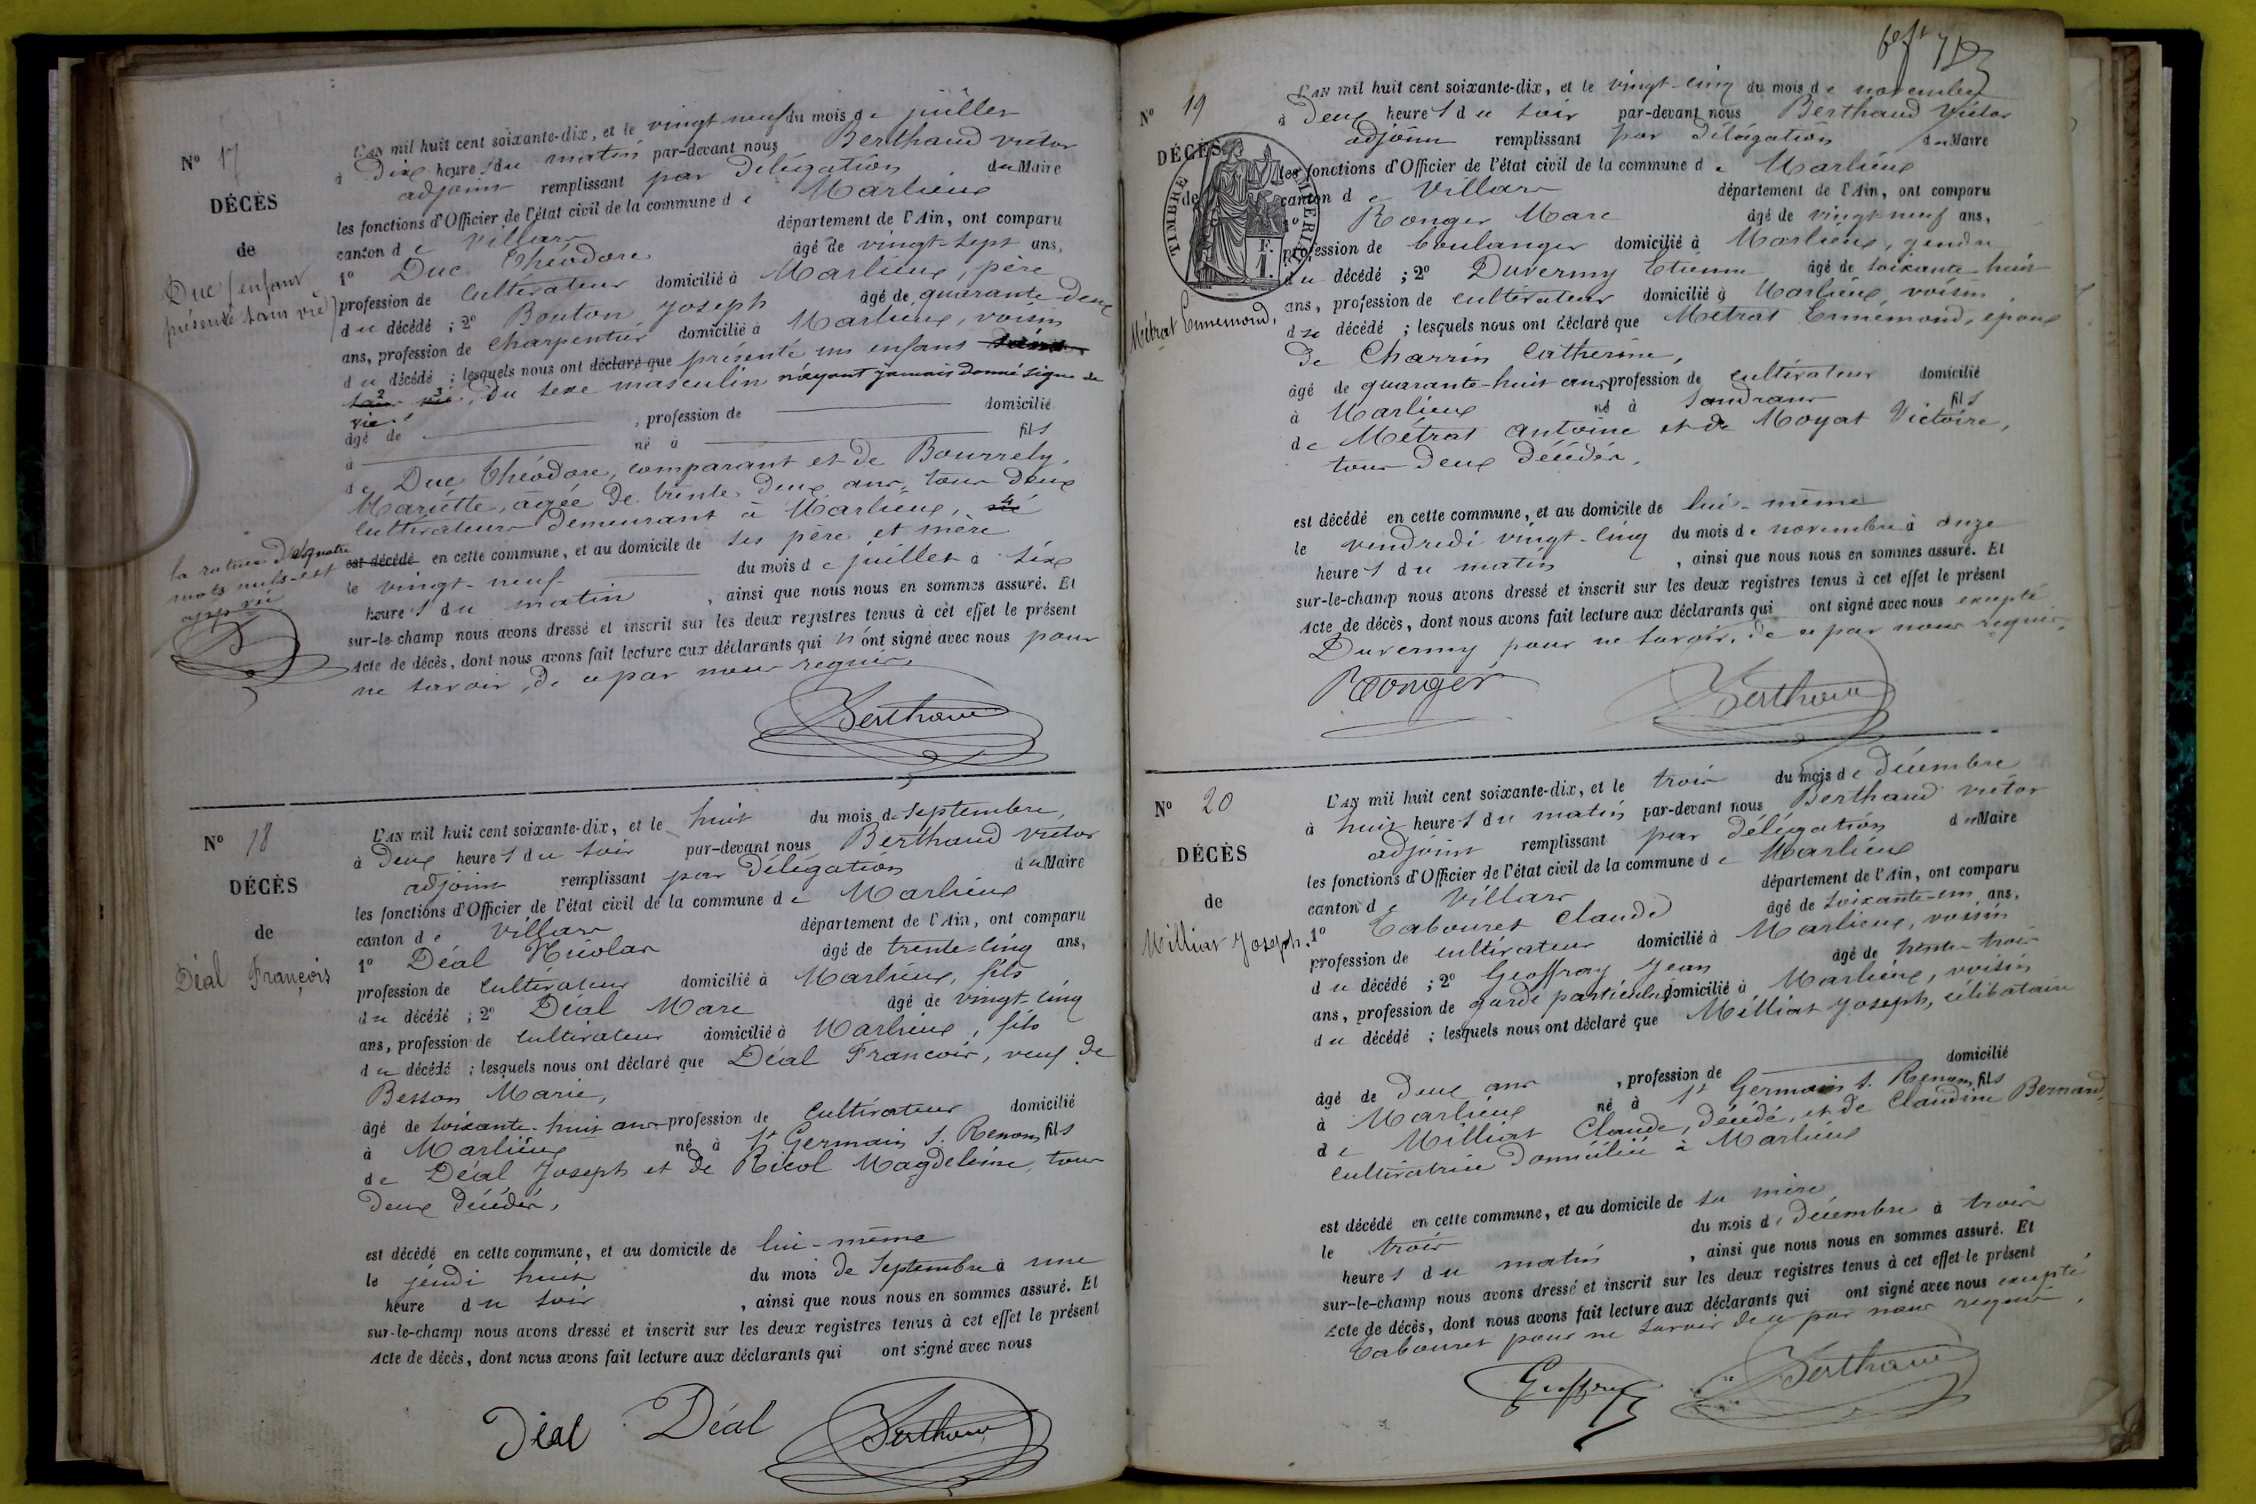 N° 17
DÉCÈS
de
Duc (enfant
présenté sans vie)
L'AN mil huit cent soixante-dix, et le vingt-neuf du mois de juillet
à Dix heures du matin par-devant nous Berthaud Victor
adjoint remplissant par Délégation du Maire
les fonctions d'Officier de l'état civil de la commune de Marlieux
canton de Villars département de l'Ain, ont comparu
1° Duc Théodore âgé de vingt-sept ans,
profession de cultivateur domicilié à Marlieux, père
du décédé ; 2° Bouton Joseph âgé de quarante deux
ans, profession de charpentier domicilié à Marlieux, voisin
du décédé ; lesquels nous ont déclaré que présenté un enfant
du sexe masculin n'ayant jamais donné signe de
vie
âgé de , profession de domicilié
à né à fils
de Duc Théodore, comparant et de Bourrely
Mariette, âgée de trente deux ans, tous deux
cultivateurs demeurant à Marlieux,
est décédé en cette commune, et au domicile de ses père et mère
le vingt-neuf du mois de juillet à six
heures du matin , ainsi que nous nous en sommes assuré. Et
sur-le-champ nous avons dressé et inscrit sur les deux registres tenus à cet effet le présent
Acte de décès, dont nous avons fait lecture aux déclarants qui n'ont signé avec nous pour
ne savoir, de ce par nous requis.
la rature de quatre
mots nuls est
Berthaud
N° 18
DÉCÈS
de
Déal François
L'AN mil huit cent soixante-dix, et le huit du mois de Septembre,
à Deux heures du soir par-devant nous Berthaud Victor
adjoint remplissant par Délégation du Maire
les fonctions d'Officier de l'état civil de la commune de Marlieux
canton de Villars département de l'Ain, ont comparu
1° Déal Nicolas âgé de trente-cinq ans,
profession de cultivateur domicilié à Marlieux, fils
du décédé ; 2° Déal Marc âgé de vingt-cinq
ans, profession de cultivateur domicilié à Marlieux, fils
du décédé ; lesquels nous ont déclaré que Déal François, veuf de
Besson Marie,
âgé de soixante-huit ans profession de cultivateur domicilié
à Marlieux né à St Germain s. Renom fils
de Déal Joseph et de Ricol Magdeleine, tous
deux décédés,
est décédé en cette commune, et au domicile de lui-même
le jeudi huit du mois de Septembre à une
heure du soir , ainsi que nous nous en sommes assuré. Et
sur-le-champ nous avons dressé et inscrit sur les deux registres tenus à cet effet le présent
Acte de décès, dont nous avons fait lecture aux déclarants qui ont signé avec nous
Déal Déal Berthaud
N° 19
DÉCÈS
de
TIMBRE IMPERIAL
Métrat Ennemond,
L'AN mil huit cent soixante-dix, et le vingt-cinq du mois de novembre
à Deux heures du soir par-devant nous Berthaud Victor
adjoint remplissant par Délégation du Maire
les fonctions d'Officier de l'état civil de la commune de Marlieux
canton de Villars département de l'Ain, ont comparu
1° Ronger Marc âgé de vingt-neuf ans,
profession de boulanger domicilié à Marlieux, gendre
du décédé ; 2° Duvernay Etienne âgé de soixante-huit
ans, profession de cultivateur domicilié à Marlieux, voisin
du décédé ; lesquels nous ont déclaré que Métrat Ennemond, époux
de Charrin Catherine,
âgé de quarante-huit ans profession de cultivateur domicilié
à Marlieux né à Sandrans fils
de Métrat Antoine et de Moyat Victoire,
tous deux décédés,
est décédé en cette commune, et au domicile de lui-même
le vendredi vingt-cinq du mois de novembre à onze
heures du matin , ainsi que nous nous en sommes assuré. Et
sur-le-champ nous avons dressé et inscrit sur les deux registres tenus à cet effet le présent
Acte de décès, dont nous avons fait lecture aux déclarants qui ont signé avec nous excepté
Duvernay pour ne savoir, de ce par nous requis.
Ronger Berthaud
N° 20
DÉCÈS
de
Milliat Joseph.
L'AN mil huit cent soixante-dix, et le trois du mois de décembre
à huit heures du matin par-devant nous Berthaud Victor
adjoint remplissant par délégation du Maire
les fonctions d'Officier de l'état civil de la commune de Marlieux
canton de Villars département de l'Ain, ont comparu
1° Tabouret Claude âgé de soixante-un ans,
profession de cultivateur domicilié à Marlieux, voisin
du décédé ; 2° Geoffray Jean âgé de trente-trois
ans, profession de garde particulier domicilié à Marlieux, voisin
du décédé ; lesquels nous ont déclaré que Milliat Joseph, célibataire
âgé de Deux ans , profession de domicilié
à Marlieux né à St Germain s. Renom, fils
de Milliat Claude, décédé, et de Claudine Bernard,
cultivatrice domiciliée à Marlieux
est décédé en cette commune, et au domicile de sa mère
le trois du mois de décembre à trois
heures du matin , ainsi que nous nous en sommes assuré. Et
sur-le-champ nous avons dressé et inscrit sur les deux registres tenus à cet effet le présent
Acte de décès, dont nous avons fait lecture aux déclarants qui ont signé avec nous excepté
Tabouret pour ne savoir de ce par nous requis.
Geoffray Berthaud